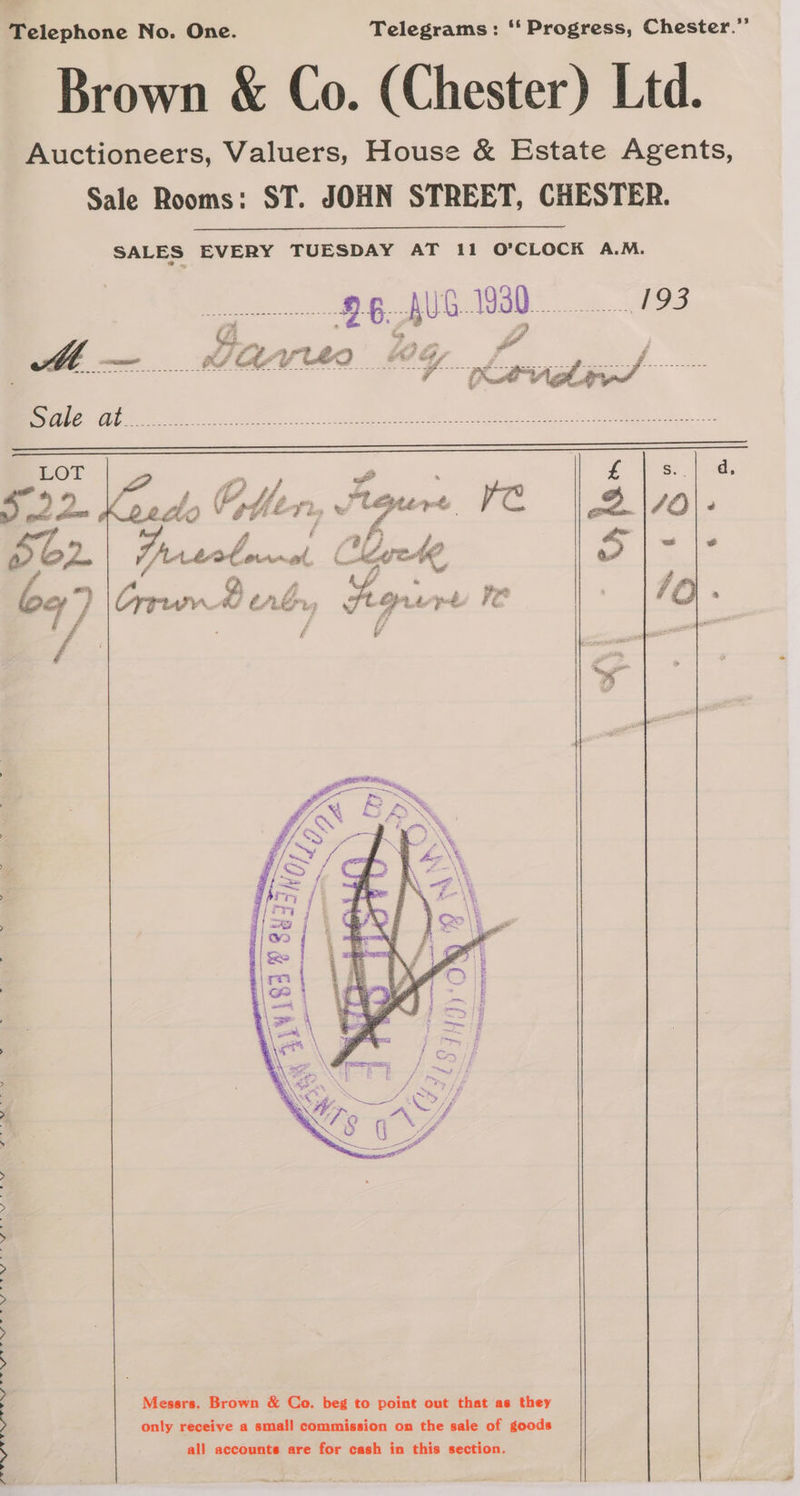 Telephone No. One. Telegrams: “Progress, Chester.”
Brown & Co. (Chester) Ltd.
Auctioneers, Valuers, House & Estate Agents,
Sale Rooms: ST. JOHN STREET, CHESTER.
SALES EVERY TUESDAY AT 11 O'CLOCK A.M.
26 AUG 1930 193
M
Sale at
LOT £ s. d.
522 Leeds Pottery Figure 2 10 -
562 Clock 5 - -
Crown Derby Figure 10 -
8 - -
BROWN & CO. (CHESTER) LD
AUCTIONEERS & ESTATE AGENTS
Messrs. Brown & Co. beg to point out that as they
only receive a small commission on the sale of goods
all accounts are for cash in this section.